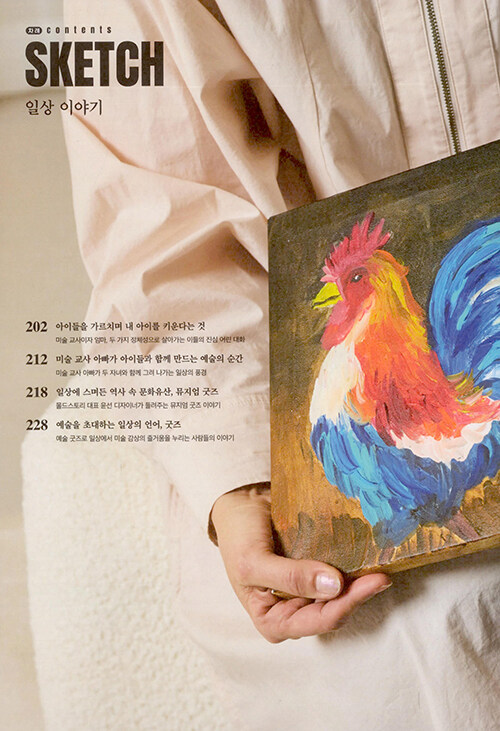 차례 contents
SKETCH
일상 이야기
202 아이들을 가르치며 내 아이를 키운다는 것
미술 교사이자 엄마, 두 가지 정체성으로 살아가는 이들의 진심 어린 대화
212 미술 교사 아빠가 아이들과 함께 만드는 예술의 순간
미술 교사 아빠가 두 자녀와 함께 그려 나가는 일상의 풍경
218 일상에 스며든 역사 속 문화유산, 뮤지엄 굿즈
올드스토리 대표 윤선 디자이너가 들려주는 뮤지엄 굿즈 이야기
228 예술을 초대하는 일상의 언어, 굿즈
예술 굿즈로 일상에서 미술 감상의 즐거움을 누리는 사람들의 이야기